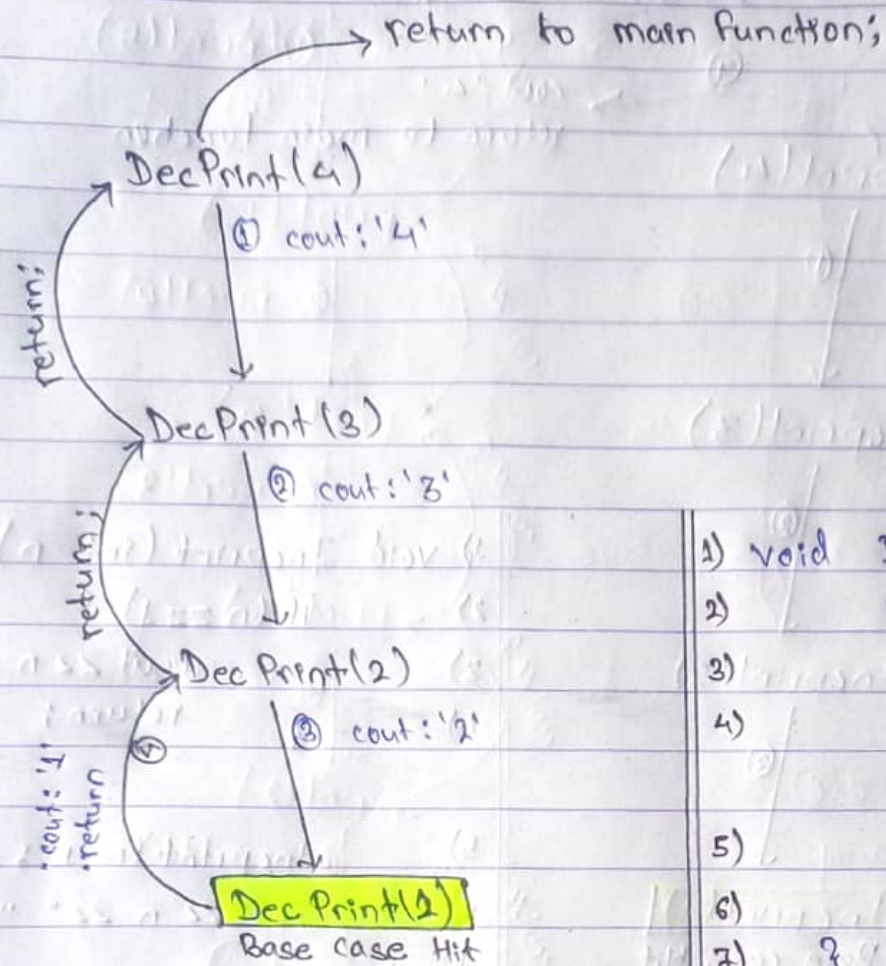 return to main function;
DecPrint(4)
① cout:'4'
return;
DecPrint(3)
② cout:'3'
return;
DecPrint(2)
③ cout:'2'
④
• cout: '1'
• return
DecPrint(1)
Base case Hit
1) void
2)
3)
4)
5)
6)
7)